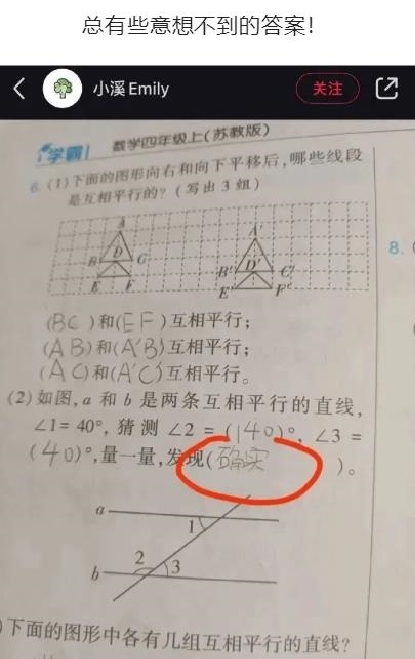 总有些意想不到的答案！
小溪Emily
关注
学霸 数学四年级上(苏教版)
6. (1)下面的图形向右和向下平移后,哪些线段
是互相平行的? (写出3组)
A
B D C
E F
A'
B' D' C'
E' F'
8.
(BC)和(EF)互相平行;
(AB)和(A'B')互相平行;
(AC)和(A'C')互相平行。
(2)如图,a 和 b 是两条互相平行的直线,
∠1=40°, 猜测 ∠2 = (140)°, ∠3 =
(40)°,量一量,发现(确实 )。
a
1
2 3
b
)下面的图形中各有几组互相平行的直线?